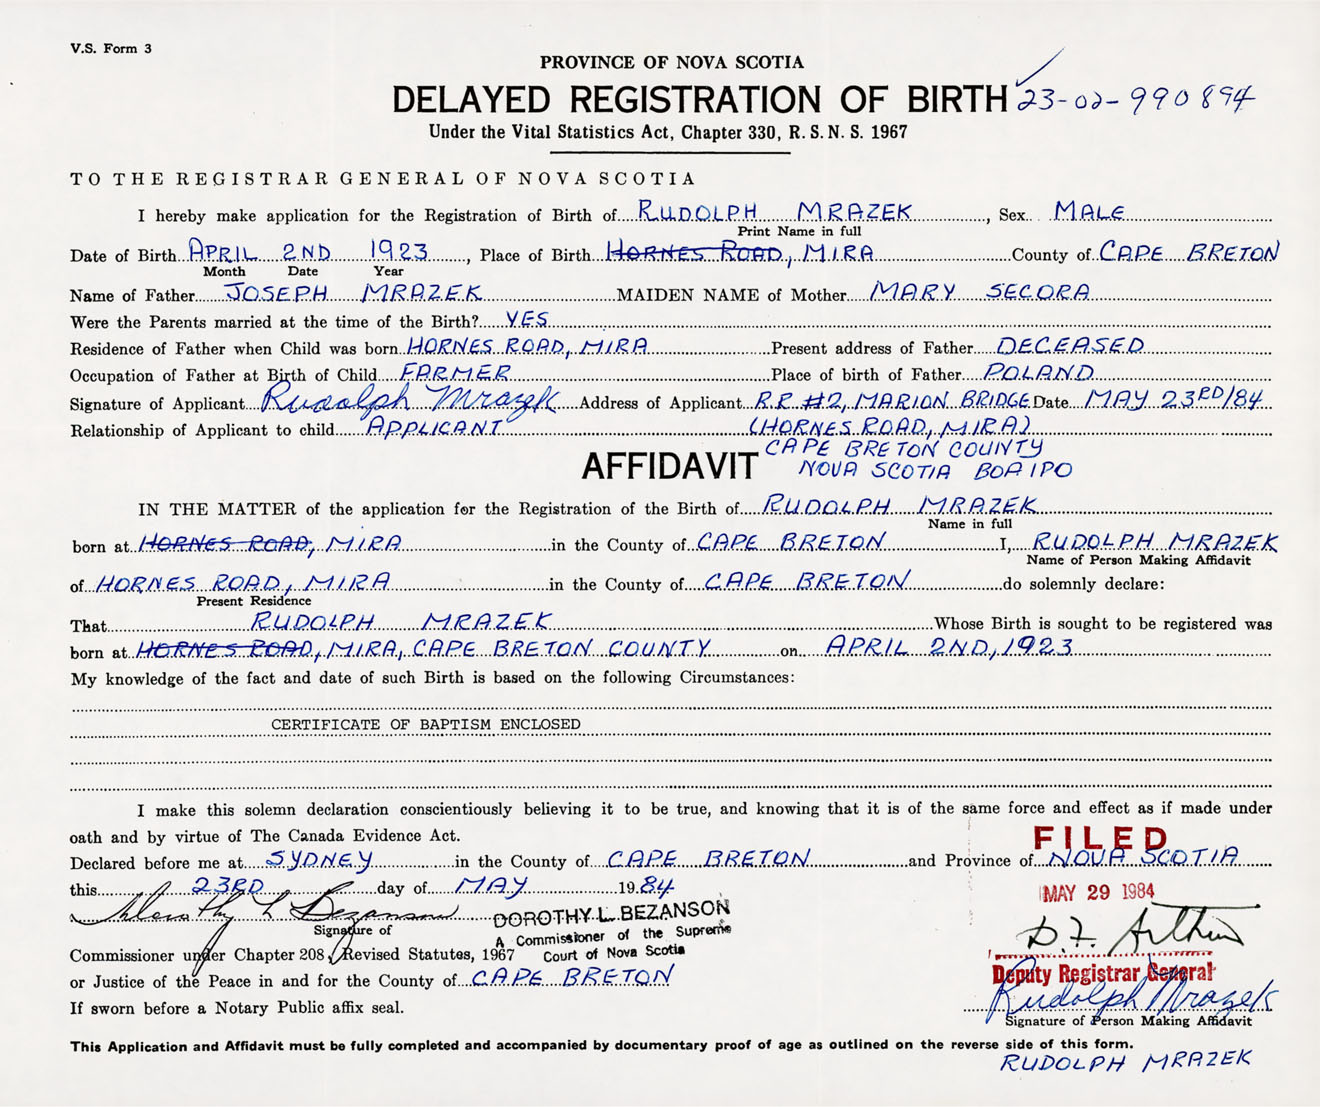 V.S. Form 3
PROVINCE OF NOVA SCOTIA
DELAYED REGISTRATION OF BIRTH 23-02-990894
Under the Vital Statistics Act, Chapter 330, R.S.N.S. 1967
TO THE REGISTRAR GENERAL OF NOVA SCOTIA
I hereby make application for the Registration of Birth of RUDOLPH MRAZEK, Sex MALE
Print Name in full
Date of Birth APRIL 2ND 1923, Place of Birth HORNES ROAD, MIRA County of CAPE BRETON
Month Date Year
Name of Father JOSEPH MRAZEK MAIDEN NAME of Mother MARY SECORA
Were the Parents married at the time of the Birth? YES
Residence of Father when Child was born HORNES ROAD, MIRA Present address of Father DECEASED
Occupation of Father at Birth of Child FARMER Place of birth of Father POLAND
Signature of Applicant Rudolph Mrazek Address of Applicant R.R #2, MARION BRIDGE Date MAY 23RD/84
Relationship of Applicant to child APPLICANT (HORNES ROAD, MIRA)
CAPE BRETON COUNTY
AFFIDAVIT NOVA SCOTIA BOA IPO
IN THE MATTER of the application for the Registration of the Birth of RUDOLPH MRAZEK
Name in full
born at HORNES ROAD, MIRA in the County of CAPE BRETON I, RUDOLPH MRAZEK
Name of Person Making Affidavit
of HORNES ROAD, MIRA in the County of CAPE BRETON do solemnly declare:
Present Residence
That RUDOLPH MRAZEK Whose Birth is sought to be registered was
born at HORNES ROAD, MIRA, CAPE BRETON COUNTY on APRIL 2ND, 1923
My knowledge of the fact and date of such Birth is based on the following Circumstances:
CERTIFICATE OF BAPTISM ENCLOSED
I make this solemn declaration conscientiously believing it to be true, and knowing that it is of the same force and effect as if made under
oath and by virtue of The Canada Evidence Act.
FILED
Declared before me at SYDNEY in the County of CAPE BRETON and Province of NOVA SCOTIA
this 23RD day of MAY 1984
MAY 29 1984
Dorothy L Bezanson DOROTHY L. BEZANSON
Signature of A Commissioner of the Supreme
D.F. Arthur
Commissioner under Chapter 208, Revised Statutes, 1967 Court of Nova Scotia
Deputy Registrar General
or Justice of the Peace in and for the County of CAPE BRETON
Rudolph Mrazek
If sworn before a Notary Public affix seal.
Signature of Person Making Affidavit
This Application and Affidavit must be fully completed and accompanied by documentary proof of age as outlined on the reverse side of this form.
RUDOLPH MRAZEK